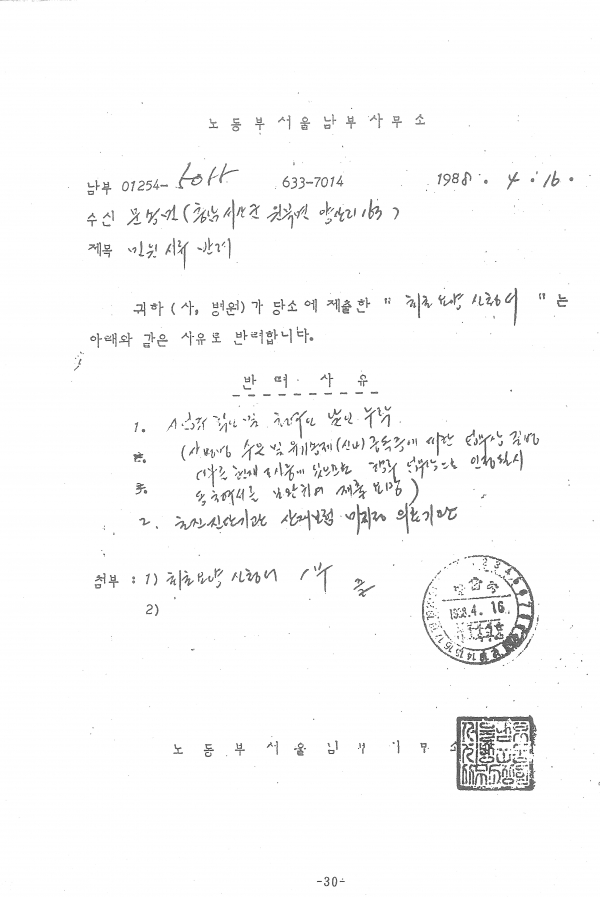 노동부서울남부사무소
남부 01254- 633-7014 1988. 4. 16.
수신 문송면(충남 서산군 원북면 양산리 163)
제목 민원서류 반려
귀하(사, 병원)가 당소에 제출한 "최초요양신청서"는
아래와 같은 사유로 반려합니다.
반 려 사 유
1. 사업주 확인 및 날인 누락
(수은 및 유기용제(신나) 중독증에 대한 업무상 질병
인정될시
제출 바람)
2. 최초진단기관 산재보험 미지정 의료기관
첨부 : 1) 최초요양신청서 1부 끝
2)
1988.4.16
노동부서울남부사무소
-30-